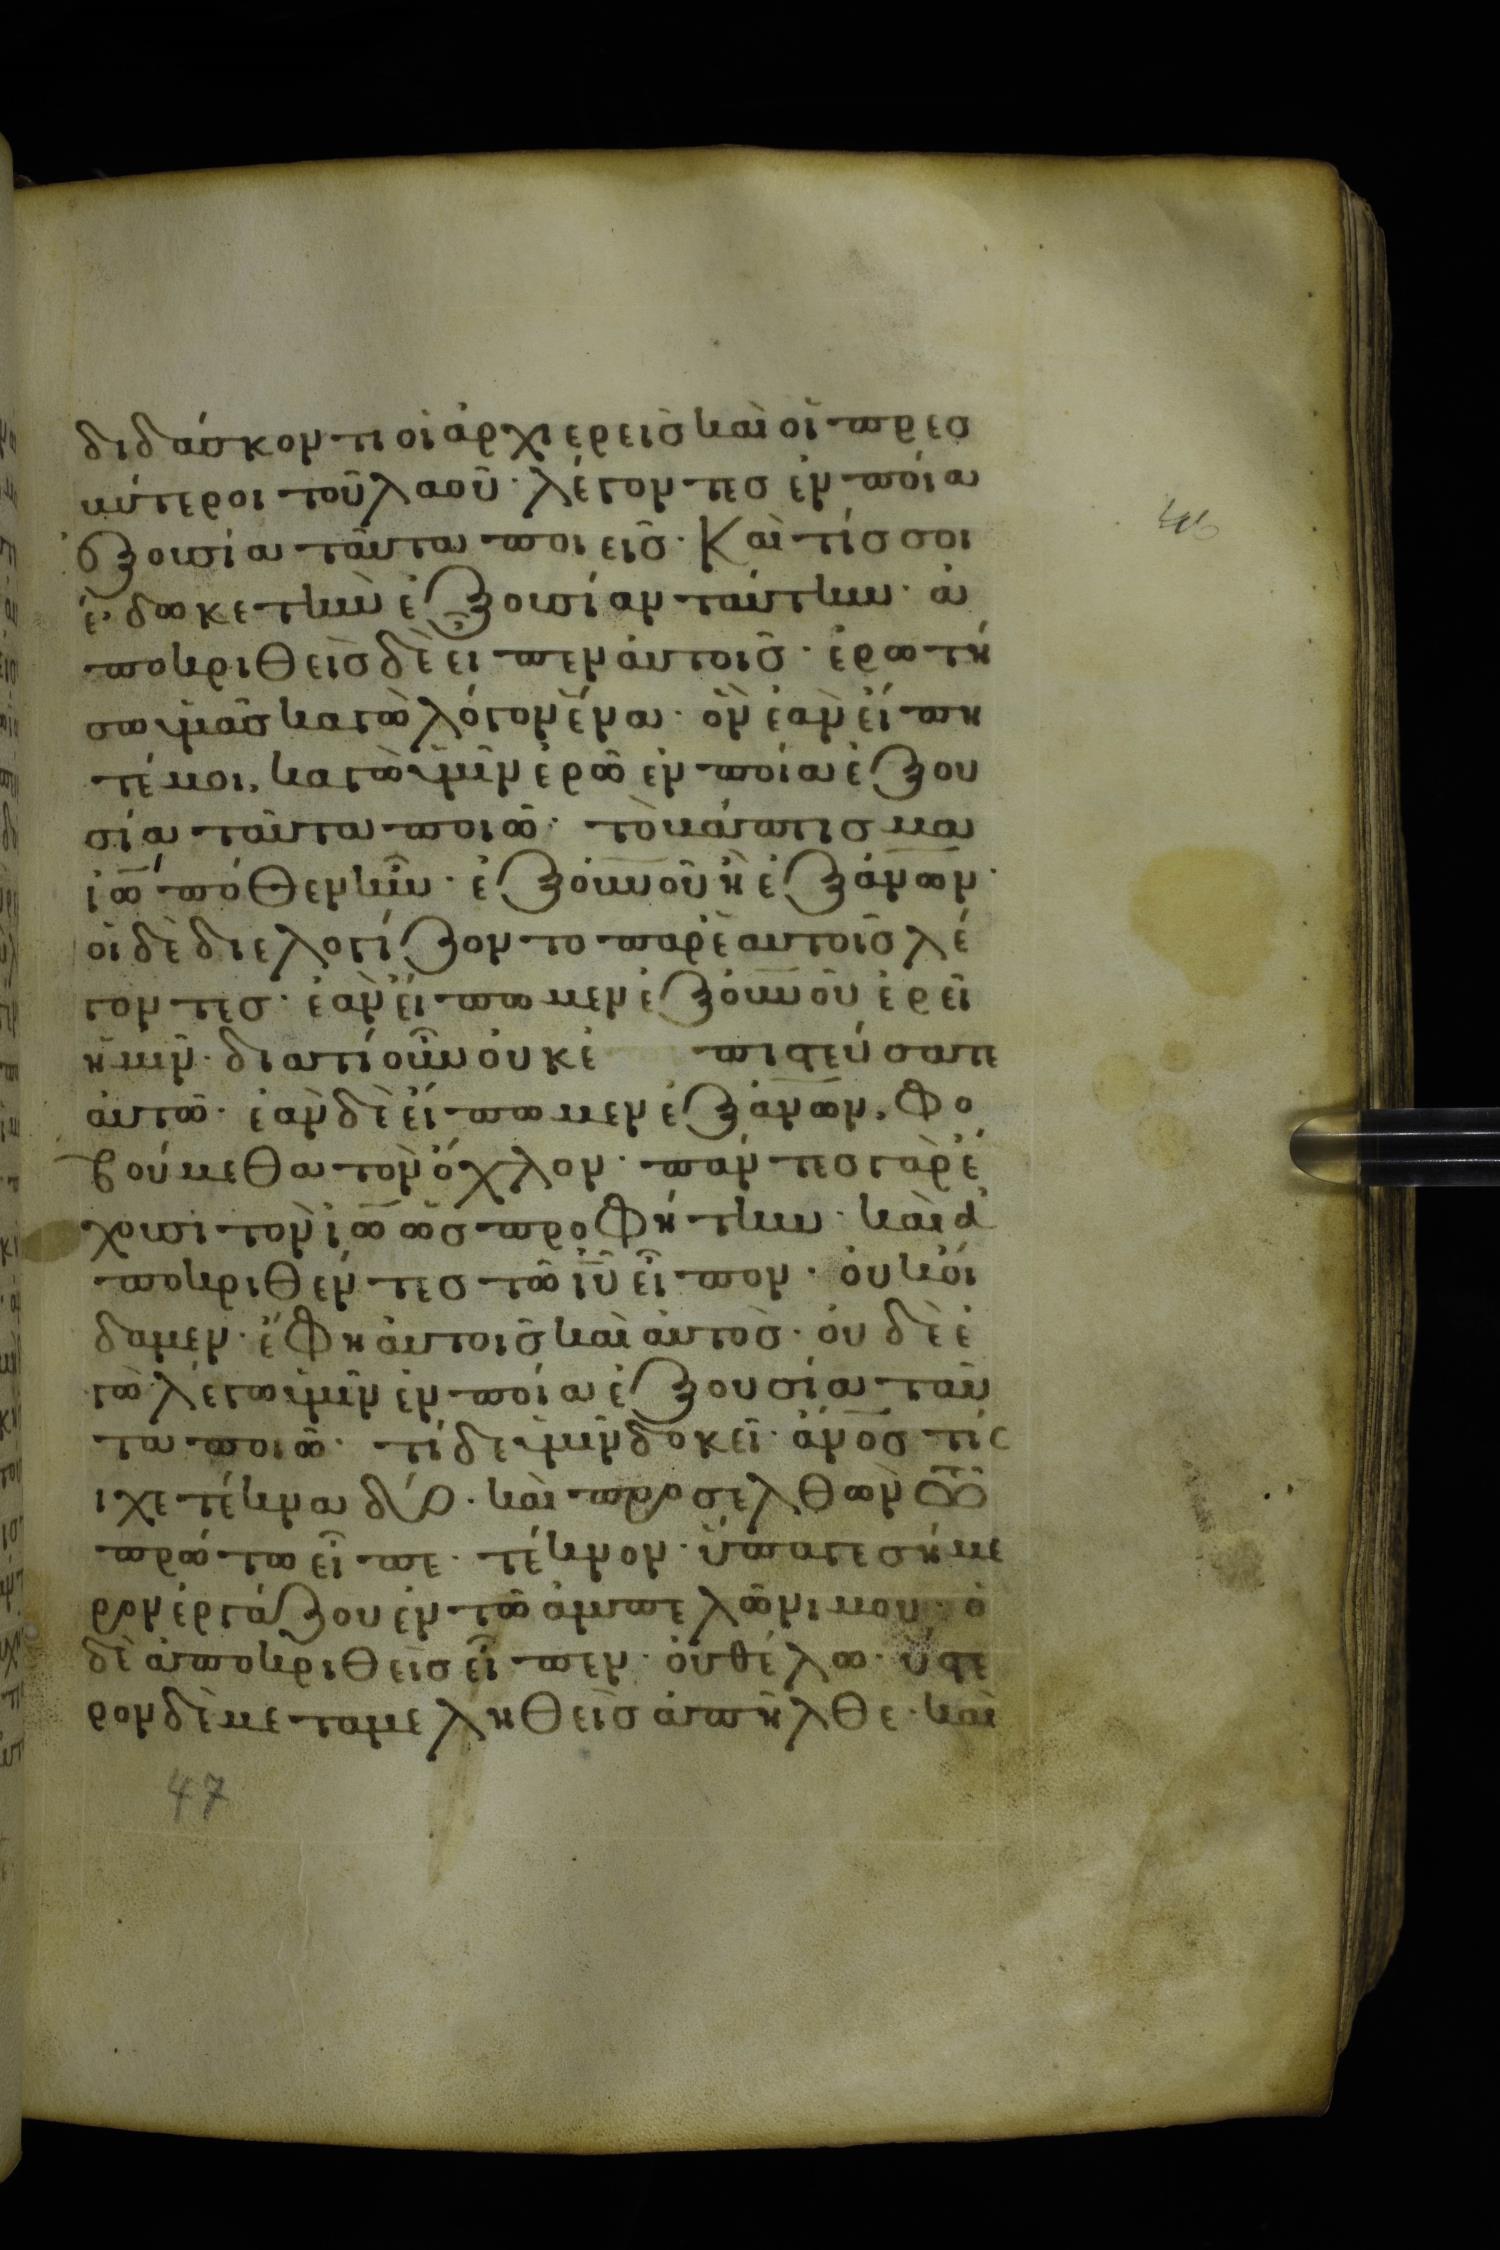 διδάσκοντι οἱ ἀρχιερεῖς καὶ οἱ πρεσ
βύτεροι τοῦ λαοῦ· λέγοντες ἐν ποία
ἐξουσία ταῦτα ποιεῖς· Καὶ τίς σοι
ἔδωκε τὴν ἐξουσίαν ταύτην· ἀ
ποκριθεὶς δὲ ὁ ις εἶπεν αὐτοῖς· ἐρωτή
σω ὑμᾶς κατὼ λόγον ἕνα· ὃν ἐὰν εἴπη
τέ μοι, κατὼ ὑμῖν ἐρῶ ἐν ποία ἐξου
σία ταῦτα ποιῶ· τὸ βάπτισμα
ιω πόθεν ἦν· ἐξ οὐνοῦ ἢ ἐξ ἀνων·
οἱ δὲ διελογίζοντο παρ' ἑαυτοῖς λέ
γοντες· ἐὰν εἴπωμεν ἐξ οὐνοῦ ἐρεῖ
ἡμῖν· διατί οὖν οὐκ ἐπιστεύσατε
αὐτῶ· ἐὰν δὲ εἴπωμεν ἐξ ἀνων, Φο
βούμεθα τὸν ὄχλον· πάντες γὰρ ἔ
χουσι τὸν ιω ὡς προφήτην· καὶ ἀ
ποκριθέντες τῶ ιυ εἶπον· οὐκ οἴ
δαμεν· ἔφη αὐτοῖς καὶ αὐτὸς· οὐδὲ ἐ
γὼ λέγω ὑμῖν ἐν ποία ἐξουσία ταῦ
τα ποιῶ· τί δὲ ὑμῖν δοκεῖ· ἀνος τίς
εἶχε τέκνα δύο· καὶ προσελθὼν τῶ
πρώτω εἶπε· τέκνον· ὕπαγε σήμε
ρον ἐργάζου ἐν τῶ ἀμπελῶνι μου· ὁ
δὲ ἀποκριθεὶς εἶπεν· οὐ θέλω· ὕστε
ρον δὲ μεταμεληθεὶς ἀπῆλθε· καὶ
47
46